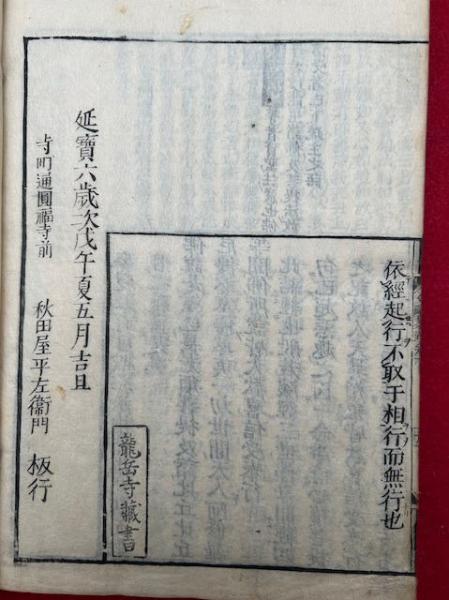 依經起行不取于相行而無行也
龍岳寺藏書
延寶六歲次戊午夏五月吉旦
寺町通圓福寺前
秋田屋平左衞門 板行